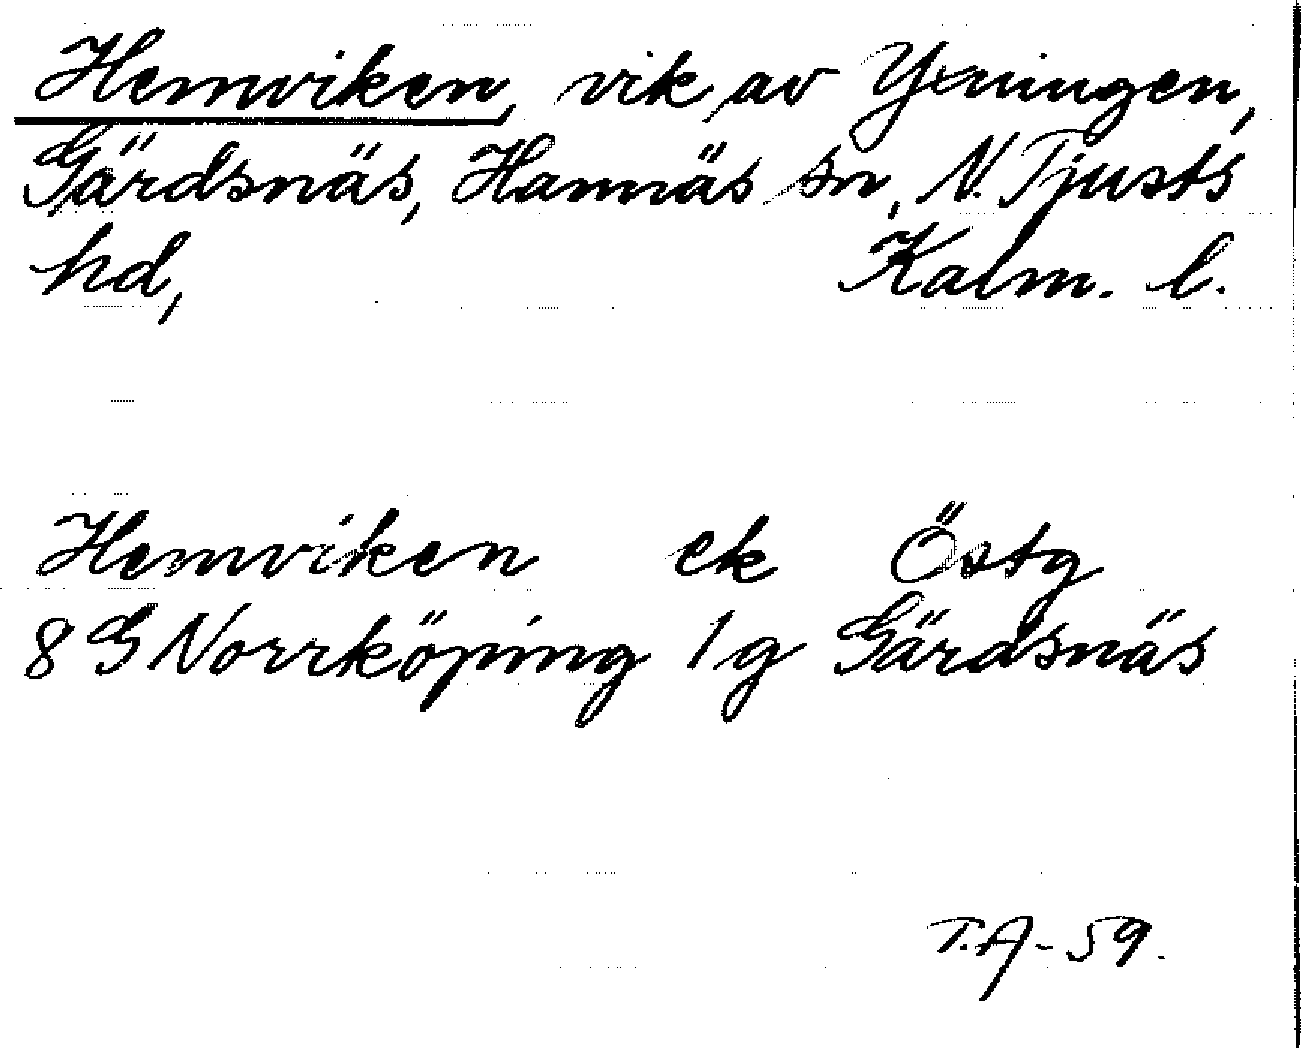 Hemviken, vik av Yxningen,
Gärdsnäs, Hannäs sn, N. Tjusts
hd, Kalm. l.
Hemviken ek Östg
8 G Norrköping 1 g Gärdsnäs
T.A-59.